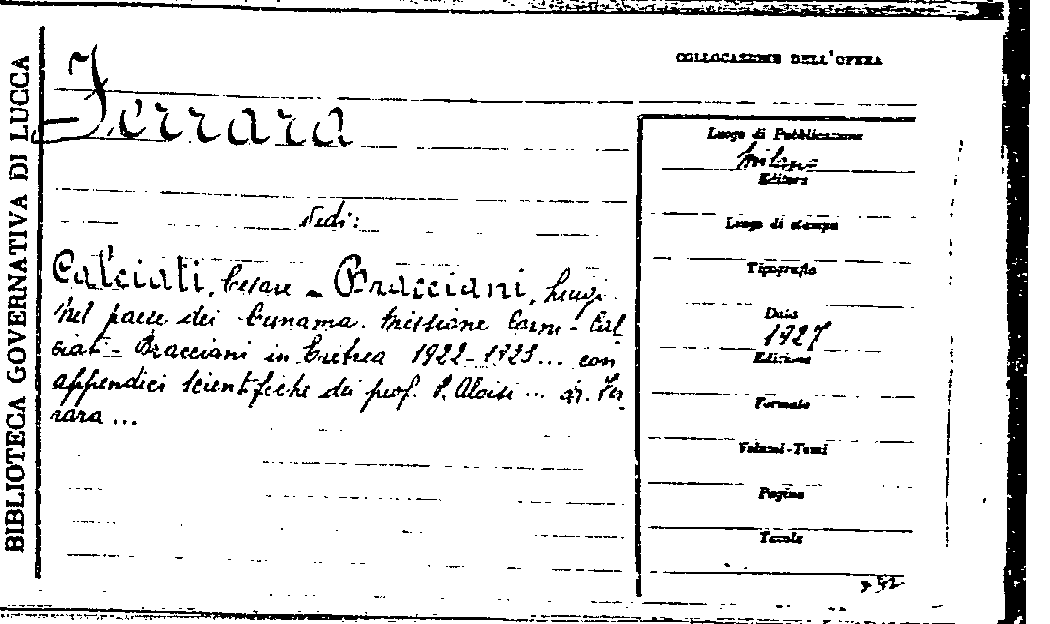 BIBLIOTECA GOVERNATIVA DI LUCCA
COLLOCAZIONE DELL'OPERA
Ferrara
Vedi:
Calciati, Cesare - Bracciani, Luigi.
Nel paese dei Cunama. Missione Corni - Cal
ciati - Bracciani in Eritrea 1922-1923... con
appendici scientifiche dei prof. P. Aloisi ... Fer
rara ...
Luogo di Pubblicazione
Milano
Editore
Luogo di stampa
Tipografia
Data
1927
Edizione
Formato
Volumi-Tomi
Pagine
Tavole